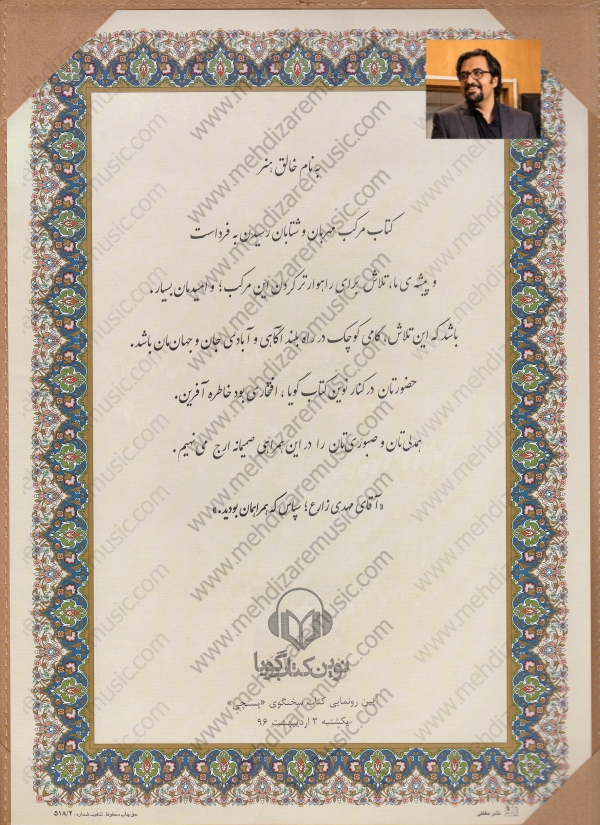 به نام خالق هنر
کتاب مرکب مهربان و شتابان رسیدن به فرداست
و پیشه‌ی ما، تلاش برای راهوارتر کردن این مرکب؛ و امیدمان بسیار.
باشد که این تلاش، گامی کوچک در راه بلند آگاهی و آبادی جان و جهان‌مان باشد.
حضورتان در کنار نوین کتاب گویا، افتخاری بود خاطره آفرین.
همدلی‌تان و صبوری‌تان را در این همراهی صمیمانه ارج می‌نهیم.
«آقای مهدی زارع؛ سپاس که همراهمان بودید.»
نوین کتاب گویا
آیین رونمایی کتاب سخنگوی «پستچی»
یکشنبه ۳ اردیبهشت ۹۶
حق چاپ محفوظ. تذهیب شماره: ۵۱۸/۲
نشر حافظی
www.mehdizaremusic.com